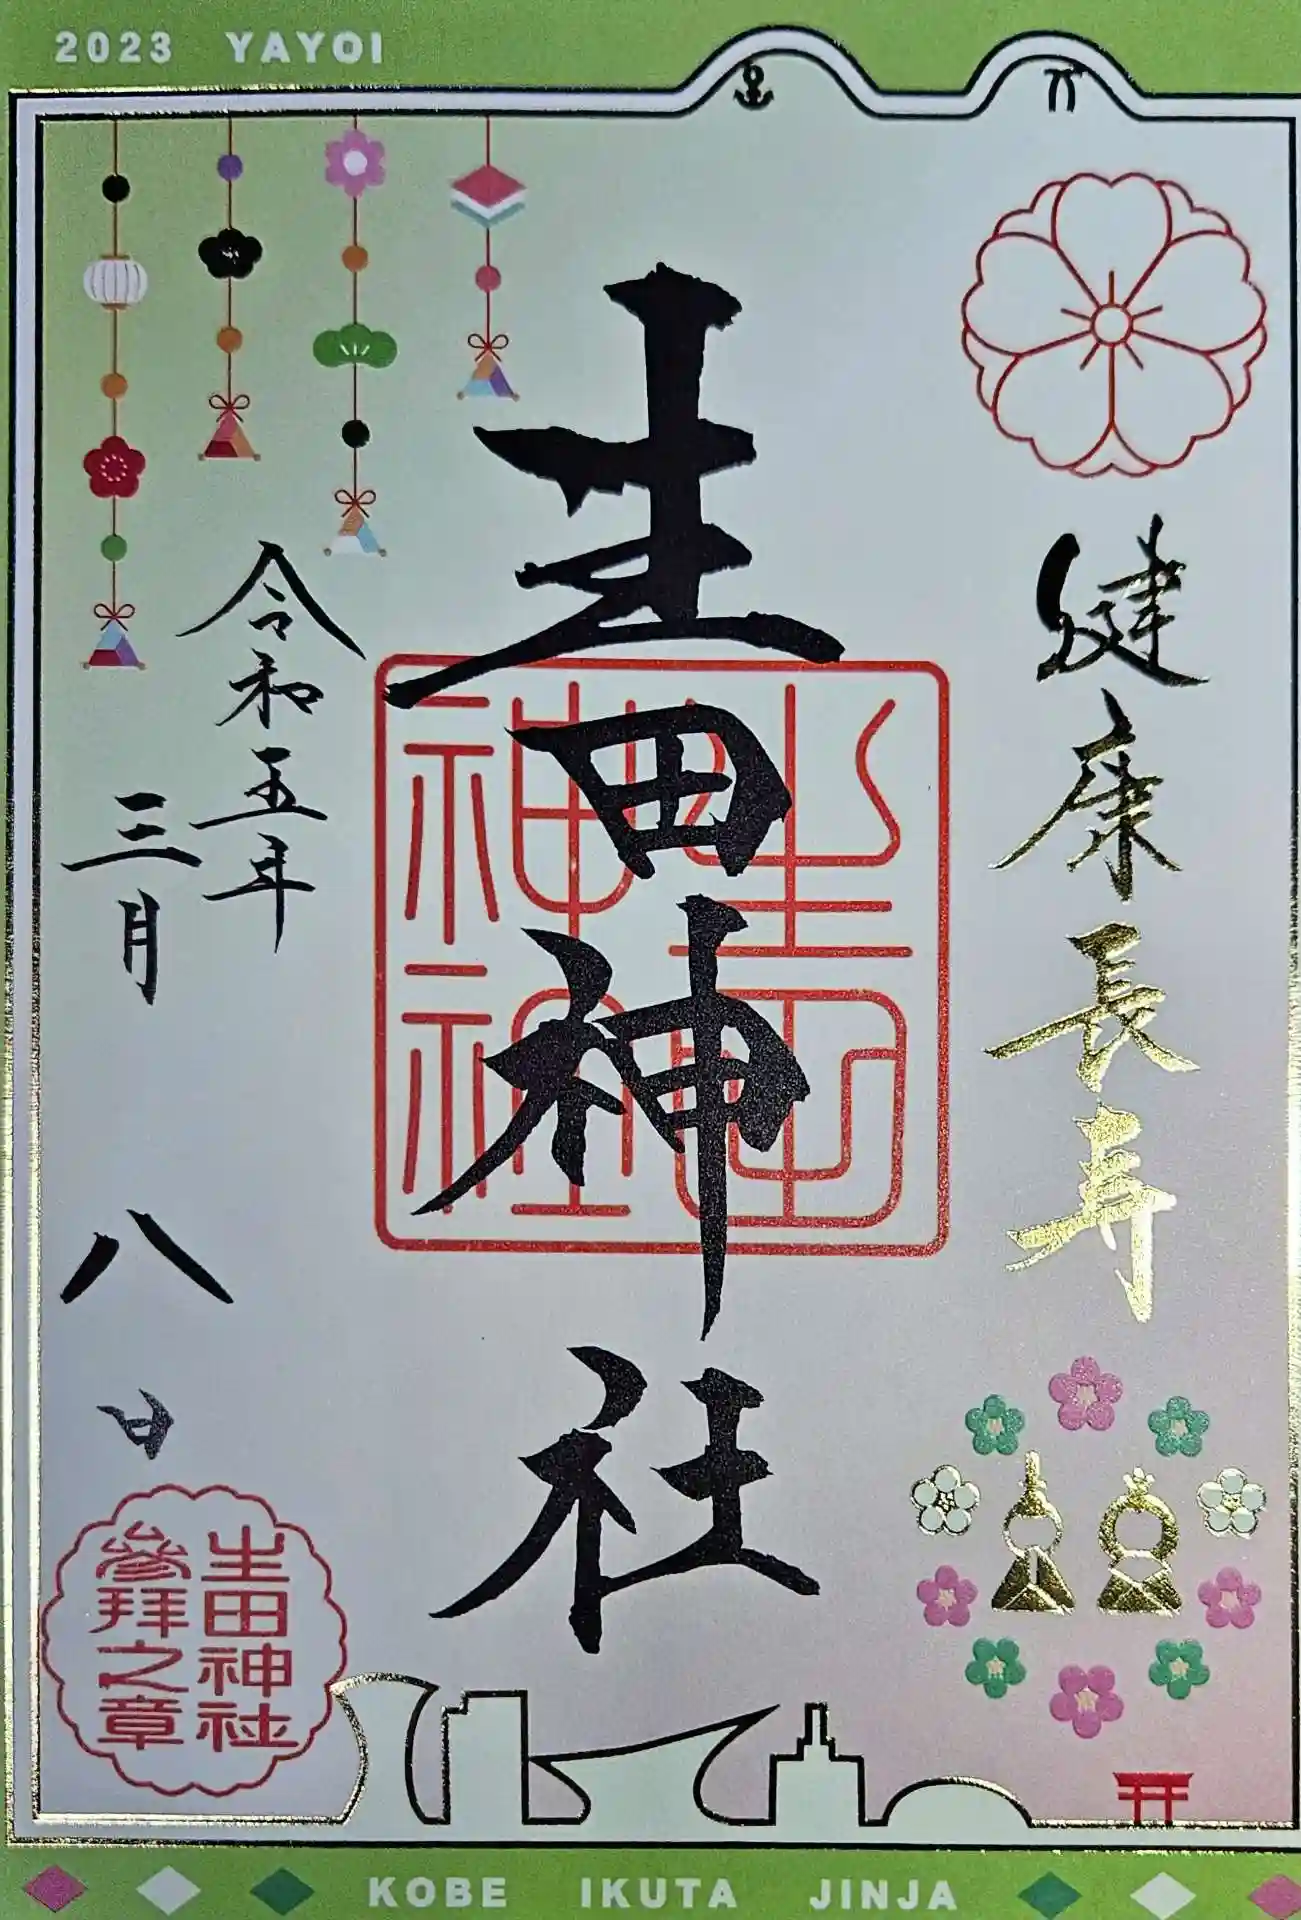 2023 YAYOI
健康長寿
生田神社
生田神社
令和五年
三月八日
生田神社
參拜之章
KOBE IKUTA JINJA